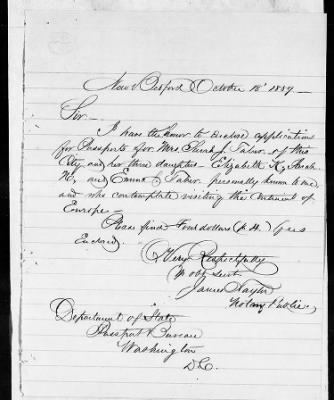 New Bedford October 18" 1887
Sir—
I have the honor to enclose applications
for Passports for Mrs. Sarah J. Taber of this
City and her three daughters Elizabeth K, Sarah
H, and Emma J. Taber personally known to me,
and who contemplate visiting the Continent of
Europe—
Please find Four dollars ($4.) fees
Enclosed.
Very Respectfully
Yr obt Servt
James Taylor
Notary Public
Department of State
Passport Bureau
Washington
D.C.